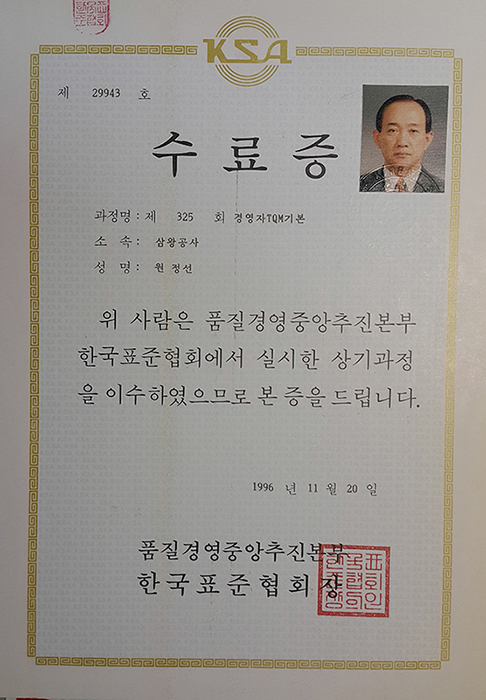 KSA
제 29943 호
수료증
과정명 : 제 325 회 경영자TQM기본
소 속 : 삼왕공사
성 명 : 원 정선
위 사람은 품질경영중앙추진본부
한국표준협회에서 실시한 상기과정
을 이수하였으므로 본 증을 드립니다.
1996 년 11 월 20 일
품질경영중앙추진본부
한국표준협회장